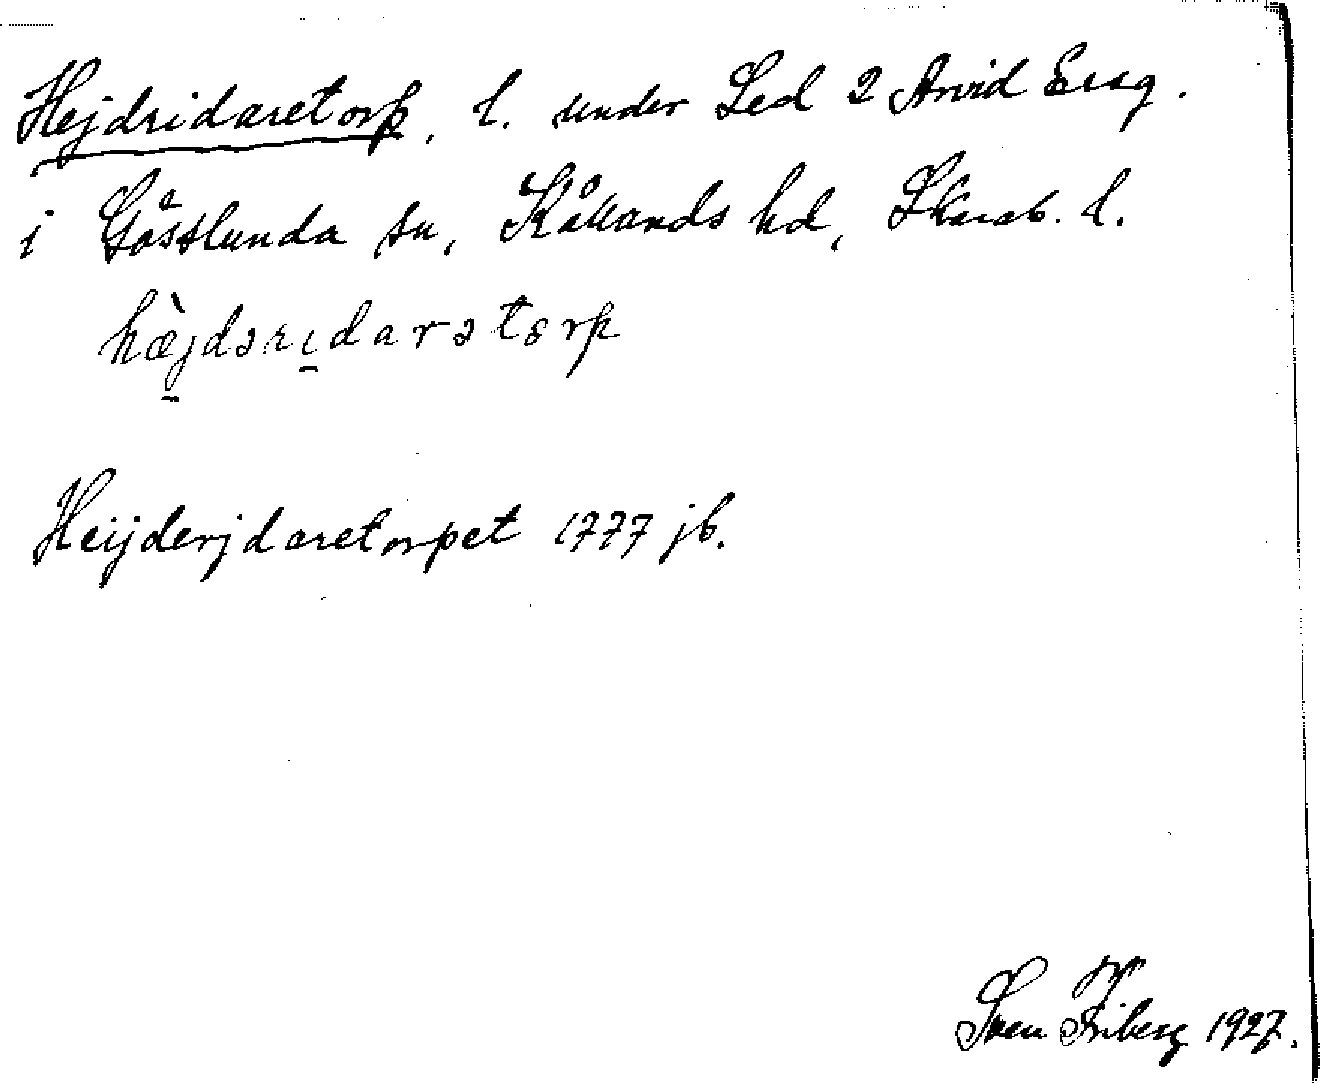 Hejdridaretorp, l. under Led 2 Arvid Ersg.
i Gösslunda sn, Kållands hd, Skarab. l.
hæ̀jdəridarətorp
Heijderjdaretorpet 1777 jb.
Sven Friberg 1927.